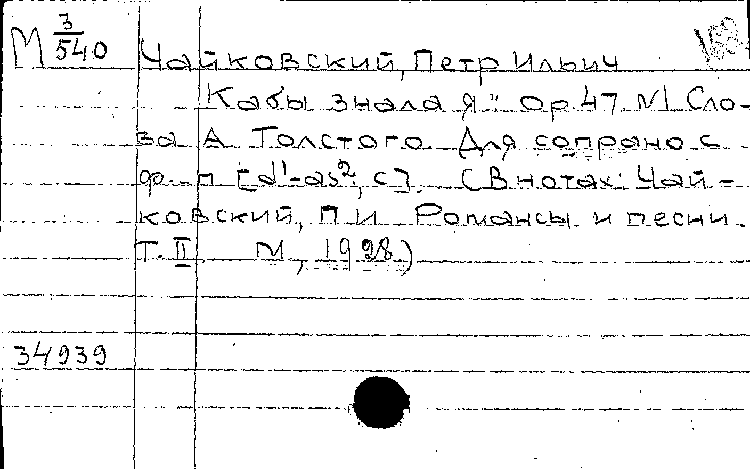 М 3/540
Чайковский, Петр Ильич
"Кабы знала я". Ор. 47. М. Сло-
ва А. Толстого. Для сопрано с
ф.-п. [d¹-as², c]. (В нотах: Чай-
ковский, П. И. Романсы и песни.
Т. II. М., 1928.)
34939